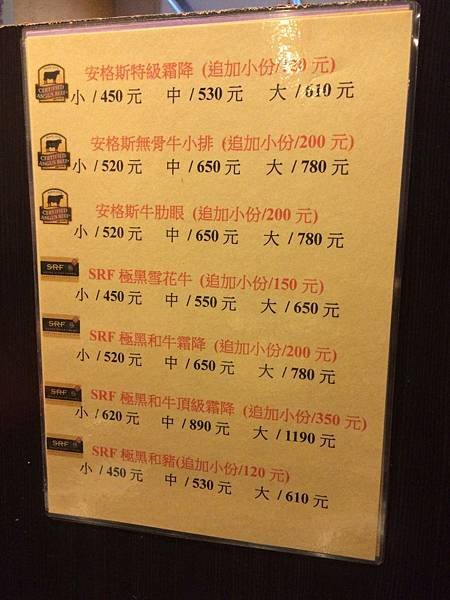 安格斯特級霜降 (追加小份/120 元)
小 / 450 元 中 / 530 元 大 / 610 元
CERTIFIED
ANGUS BEEF
安格斯無骨牛小排 (追加小份/200 元)
小 / 520 元 中 / 650 元 大 / 780 元
CERTIFIED
ANGUS BEEF
安格斯牛肋眼 (追加小份/200 元)
小 / 520 元 中 / 650 元 大 / 780 元
CERTIFIED
ANGUS BEEF
SRF
SRF 極黑雪花牛 (追加小份/150 元)
小 / 450 元 中 / 550 元 大 / 650 元
SRF
SRF 極黑和牛霜降 (追加小份/200 元)
小 / 520 元 中 / 650 元 大 / 780 元
SRF
SRF 極黑和牛頂級霜降 (追加小份/350 元)
小 / 620 元 中 / 890 元 大 / 1190 元
SRF
SRF 極黑和豬(追加小份/120 元)
小 / 450 元 中 / 530 元 大 / 610 元